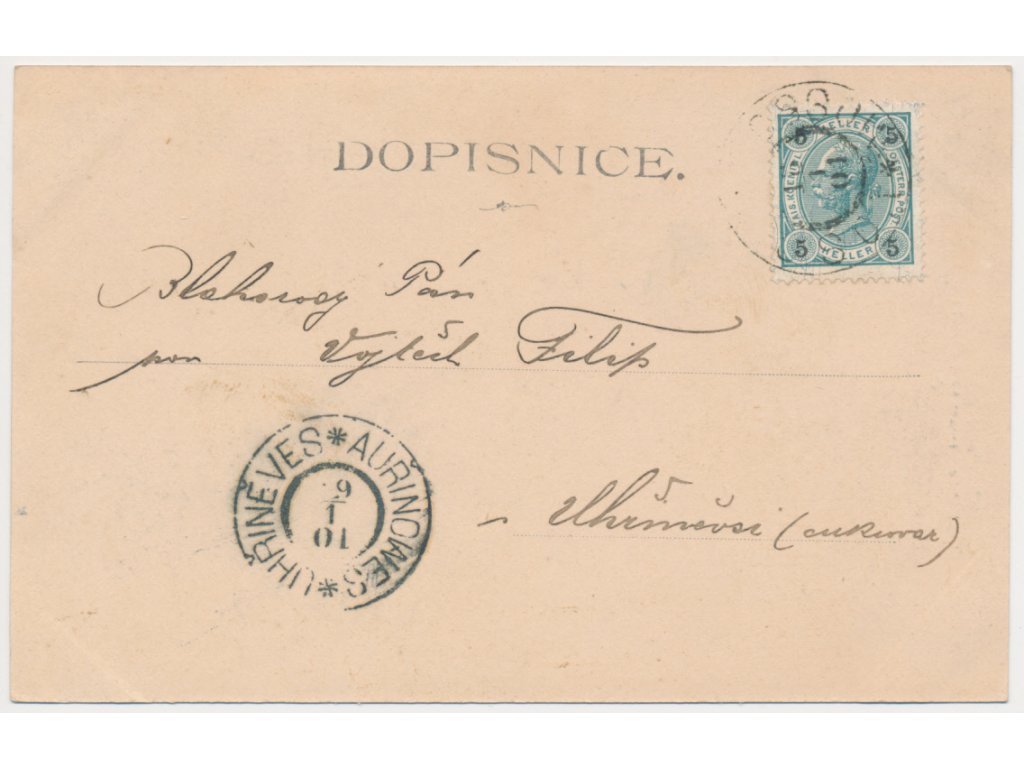 DOPISNICE.
5 HELLER 5
KAIS. KÖNIGL. OESTERR. POST.
5 HELLER 5
Blahorodý Pán
pan Vojtěch Filip
v Uhříněvsi (cukrovar)
UHŘÍNĚVES * AUŘINOWES *
9
1
01